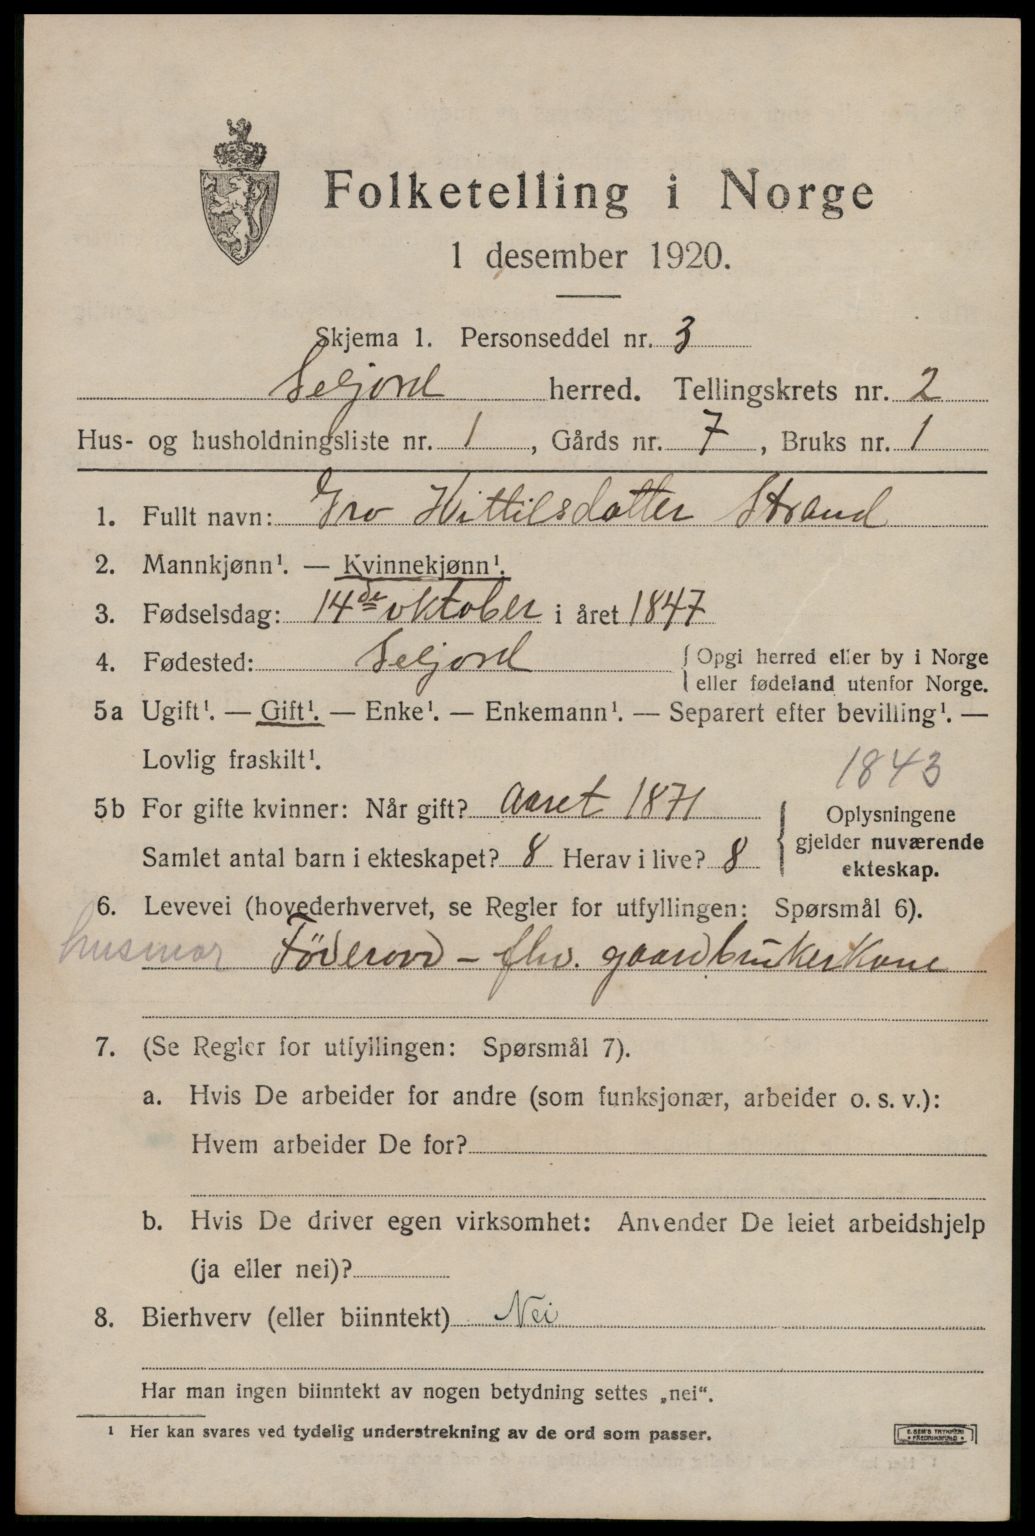 Folketelling i Norge
1 desember 1920.
Skjema 1. Personseddel nr. 3
Seljord herred. Tellingskrets nr. 2
Hus- og husholdningsliste nr. 1, Gårds nr. 7, Bruks nr. 1
1. Fullt navn: Gro Kittilsdatter Strand
2. Mannkjønn¹. — Kvinnekjønn¹.
3. Fødselsdag: 14de oktober i året 1847
4. Fødested: Seljord { Opgi herred eller by i Norge
eller fødeland utenfor Norge.
5a Ugift¹. — Gift¹. — Enke¹. — Enkemann¹. — Separert efter bevilling¹. —
Lovlig fraskilt¹.
1843
5b For gifte kvinner: Når gift? Aaret 1871
Samlet antal barn i ekteskapet? 8 Herav i live? 8
{ Oplysningene
gjelder nuværende
ekteskap.
6. Levevei (hovederhvervet, se Regler for utfyllingen: Spørsmål 6).
husmor Föderaad - fhv. gaardbrukerkone
7. (Se Regler for utfyllingen: Spørsmål 7).
a. Hvis De arbeider for andre (som funksjonær, arbeider o. s. v.):
Hvem arbeider De for?
b. Hvis De driver egen virksomhet: Anvender De leiet arbeidshjelp
(ja eller nei)?
8. Bierhverv (eller biinntekt) Nei
Har man ingen biinntekt av nogen betydning settes „nei“.
¹ Her kan svares ved tydelig understrekning av de ord som passer.